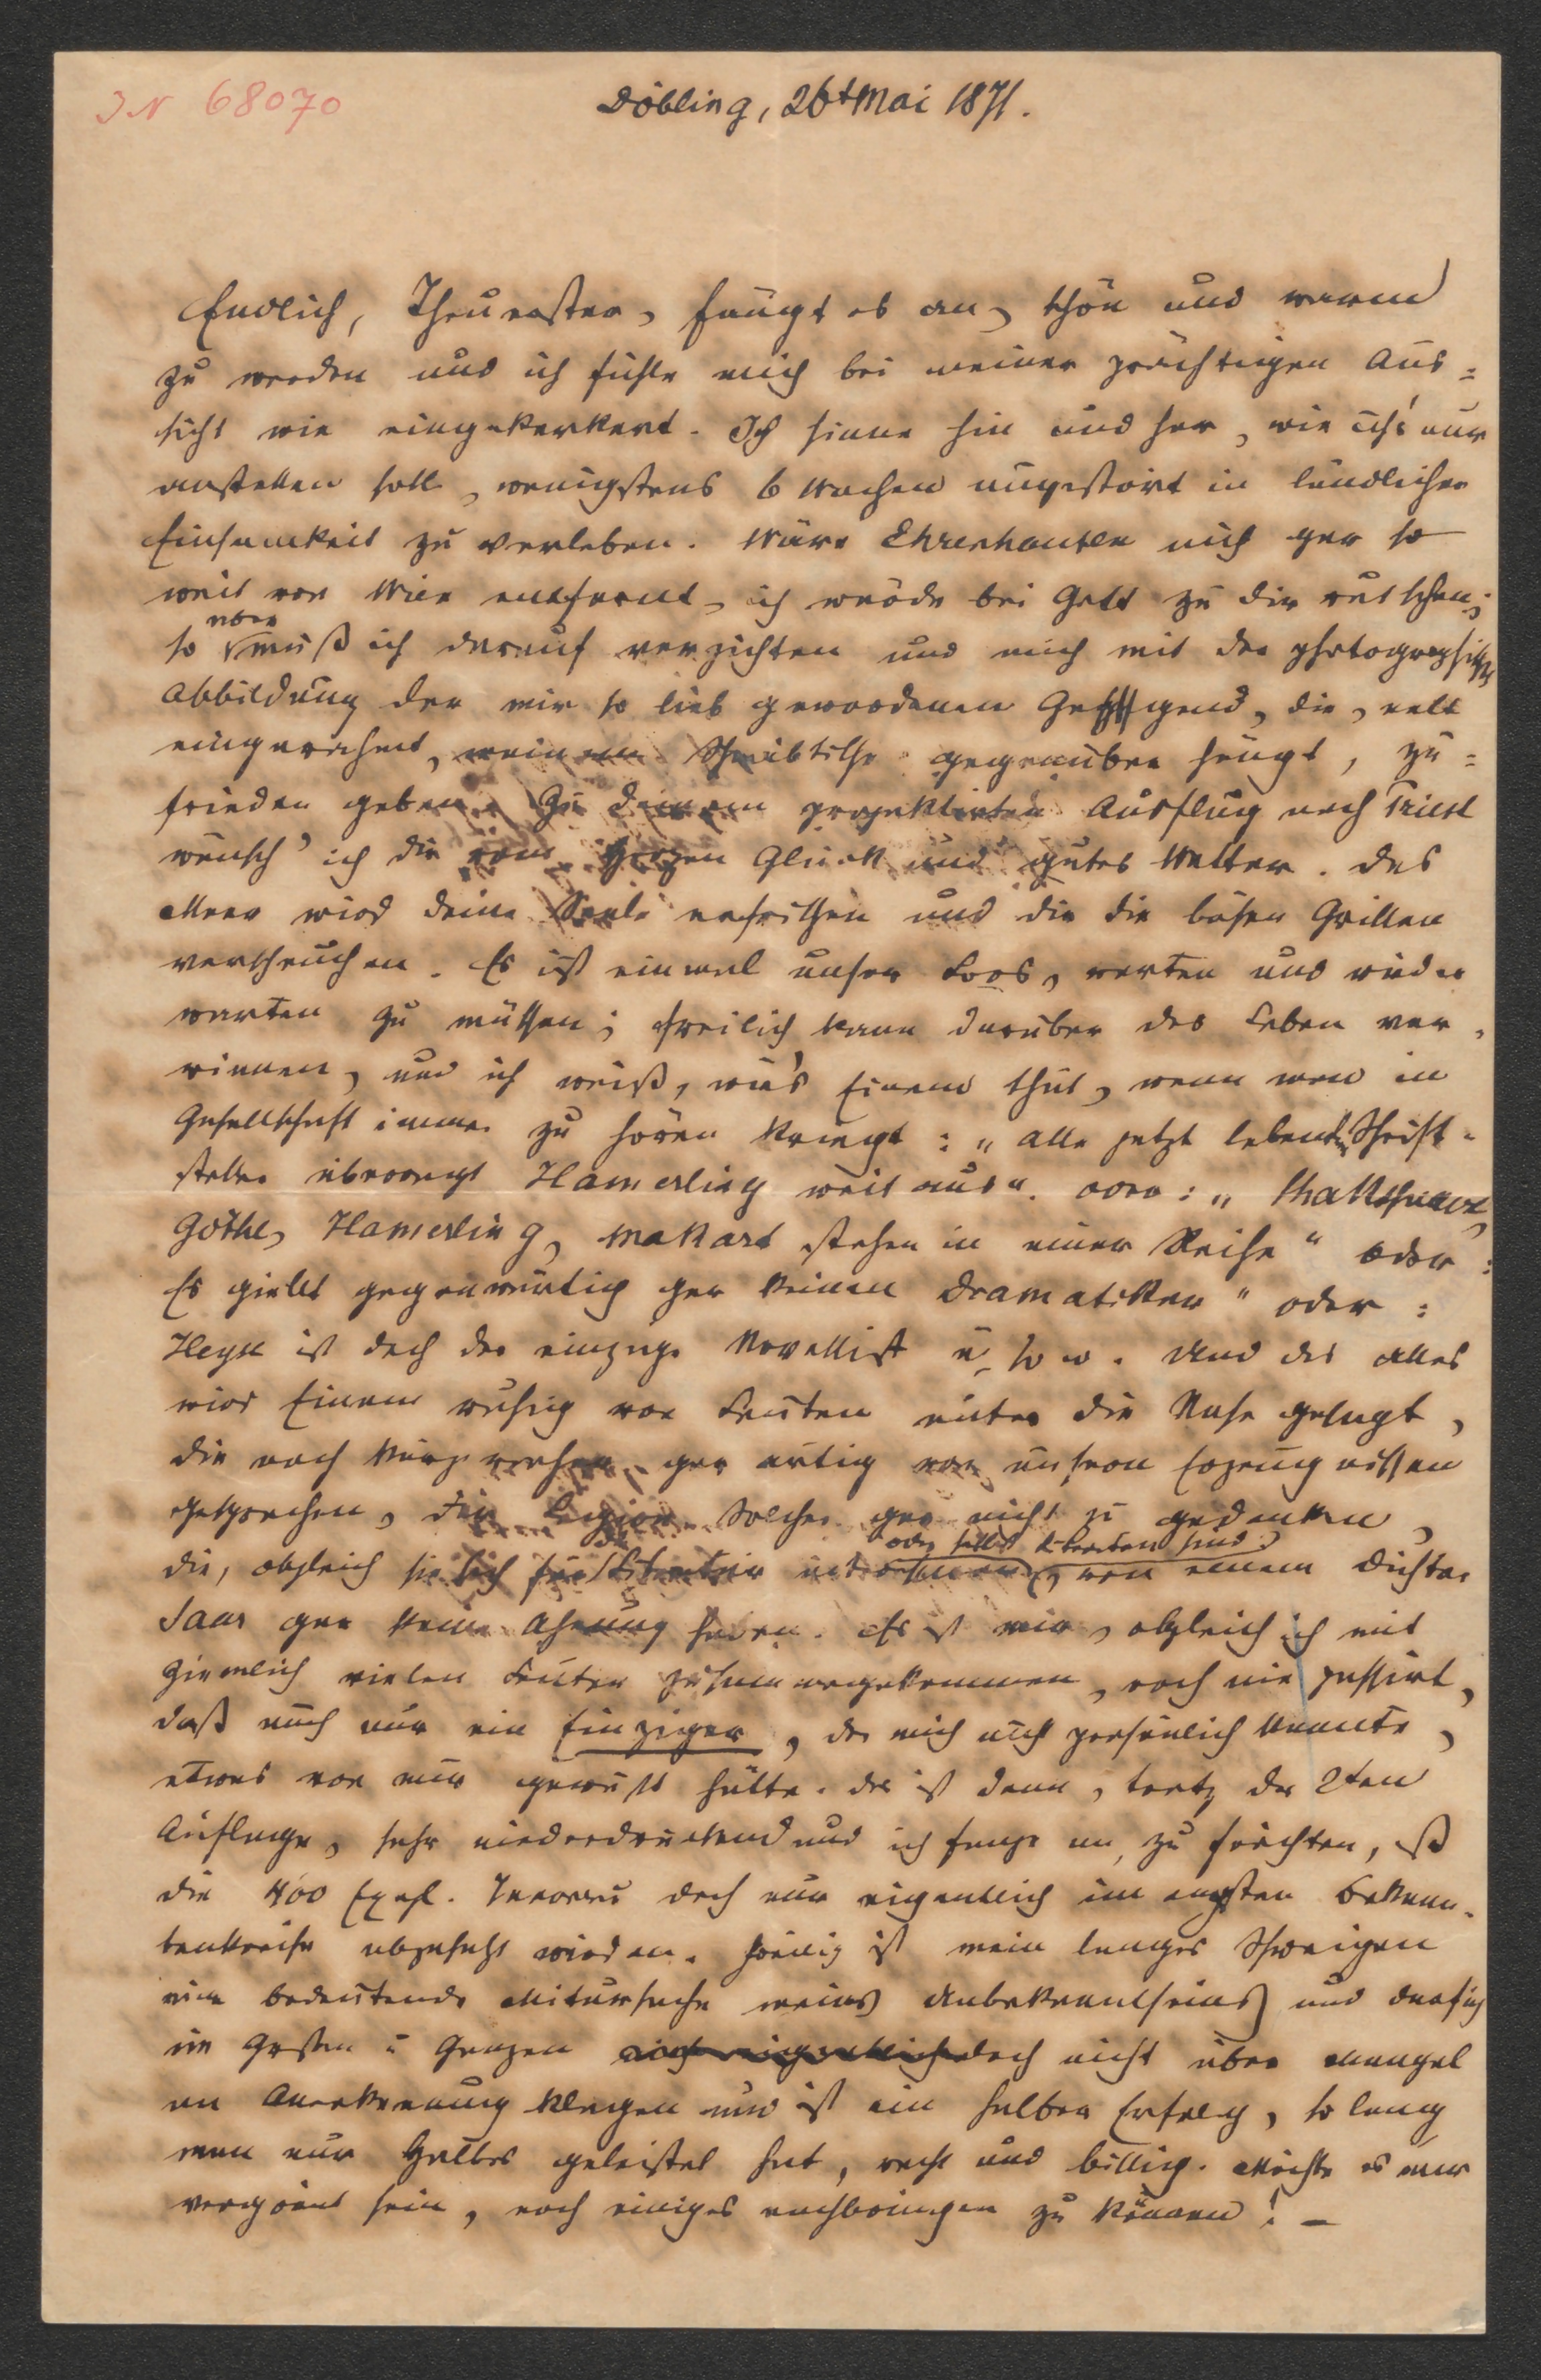 IN 68070
Döbling, 26t Mai 1871.
Endlich, Theuerster, fängt es an, schön und warm
zu werden und ich fühle mich bei meiner prächtigen Aus=
sicht wie eingekerkert. Ich sinne hin und her, wie ich's nur
anstellen soll, wenigstens 6 Wochen ungestört in ländlicher
Einsamkeit zu verleben. Wäre Ehrenhausen nicht gar so
weit von Wien entfernt, ich würde bei Gott zu dir rutschen;
so aber muß ich darauf verzichten und mich mit der photographischen
Abbildung der mir so lieb gewordenen Gegend, die, nett
eingerahmt, meinem Schreibtische gegenüber hängt, zu=
frieden geben. Zu deinem projektirten Ausflug nach Triest
wünsch' ich dir vom Herzen Glück und gutes Wetter. Das
Meer wird deine Seele erfrischen und dir die bösen Grillen
verscheuchen. Es ist einmal unser Loos, warten und wieder
warten zu müssen; freilich kann darüber das Leben ver=
rinnen, und ich weiß, wie's Einem thut, wenn man in
Gesellschaft immer zu hören kriegt: "alle jetzt lebenden Schrift=
steller überragt Hamerling weitaus". oder: "Shakspeare,
Göthe, Hamerling, Makart stehen in einer Reihe" oder:
Es giebt gegenwärtig gar keinen Dramatiker" oder:
Heyse ist doch der einzige Novellist u. s. w. Und das alles
wird Einem ruhig von Leuten unter die Nase gesagt,
die noch kurz vorher gar artig von unseren Erzeugnissen
gesprochen, der Legion Solcher gar nicht zu gedenken,
die, obgleich sie sich für Literatur interessiren (oder selbst Literaten sind), von einem Dichter
Saar gar keine Ahnung haben. Es ist mir, obgleich ich mit
ziemlich vielen Leuten zusammengekommen, noch nie passirt,
daß auch nur ein Einziger, der mich nicht persönlich kannte,
etwas von mir gewußt hätte. Das ist denn, trotz der 2ten
Auflage, sehr niederdrückend und ich fange an, zu fürchten, daß
die 400 Expl. Innocens doch nur eigentlich im engsten Bekann=
tenkreise abgesetzt wurden. Freilich ist mein langes Schweigen
eine bedeutende Mitursache meines Unbekanntseins und darf ich
im Großen u Ganzen doch nicht über Mangel
an Anerkennung klagen und ist ein halber Erfolg, so lang
man nur Halbes geleistet hat, recht und billig. Möchte es mir
vergönnt sein, noch einiges nachbringen zu können! –